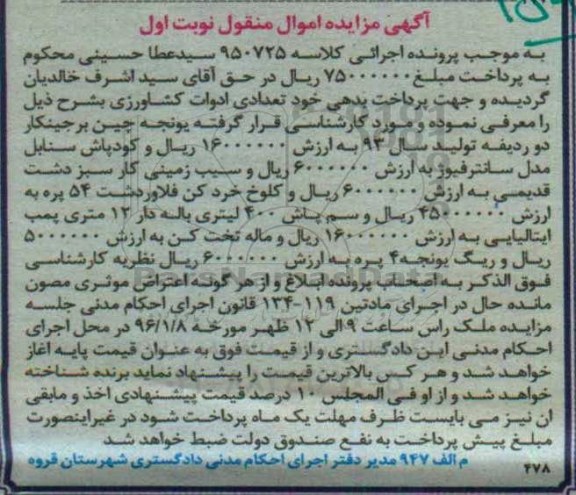 آگهی مزایده اموال منقول نوبت اول
به موجب پرونده اجرائی کلاسه ۹۵۰۷۲۵ سیدعطا حسینی محکوم
به پرداخت مبلغ ۷۵۰۰۰۰۰۰ ریال در حق آقای سید اشرف خالدیان
گردیده و جهت پرداخت بدهی خود تعدادی ادوات کشاورزی بشرح ذیل
را معرفی نموده و مورد کارشناسی قرار گرفته یونجه چین برجینکار
دو ردیفه تولید سال ۹۳ به ارزش ۱۶۰۰۰۰۰۰ ریال و کودپاش سنابل
مدل سانترفیوژ به ارزش ۶۰۰۰۰۰۰ ریال و سیب زمینی کار سبز دشت
قدیمی به ارزش ۶۰۰۰۰۰۰ ریال و کلوخ خرد کن فلاوردشت ۵۴ پره به
ارزش ۴۵۰۰۰۰۰۰ ریال و سم پاش ۴۰۰ لیتری باله دار ۱۲ متری پمپ
ایتالیایی به ارزش ۱۶۰۰۰۰۰۰ ریال و ماله تخت کن به ارزش ۵۰۰۰۰۰۰
ریال و ریگ یونجه ۴ پره به ارزش ۶۰۰۰۰۰۰ ریال نظریه کارشناسی
فوق الذکر به اصحاب پرونده ابلاغ و از هر گونه اعتراض موثری مصون
مانده حال در اجرای مادتین ۱۱۹-۱۳۴ قانون اجرای احکام مدنی جلسه
مزایده ملک راس ساعت ۹ الی ۱۲ ظهر مورخه ۹۶/۱/۸ در محل اجرای
احکام مدنی این دادگستری و از قیمت فوق به عنوان قیمت پایه آغاز
خواهد شد و هر کس بالاترین قیمت را پیشنهاد نماید برنده شناخته
خواهد شد و از او فی المجلس ۱۰ درصد قیمت پیشنهادی اخذ و مابقی
ان نیز می بایست ظرف مهلت یک ماه پرداخت شود در غیراینصورت
مبلغ پیش پرداخت به نفع صندوق دولت ضبط خواهد شد
م الف ۹۴۷ مدیر دفتر اجرای احکام مدنی دادگستری شهرستان قروه
۴۷۸